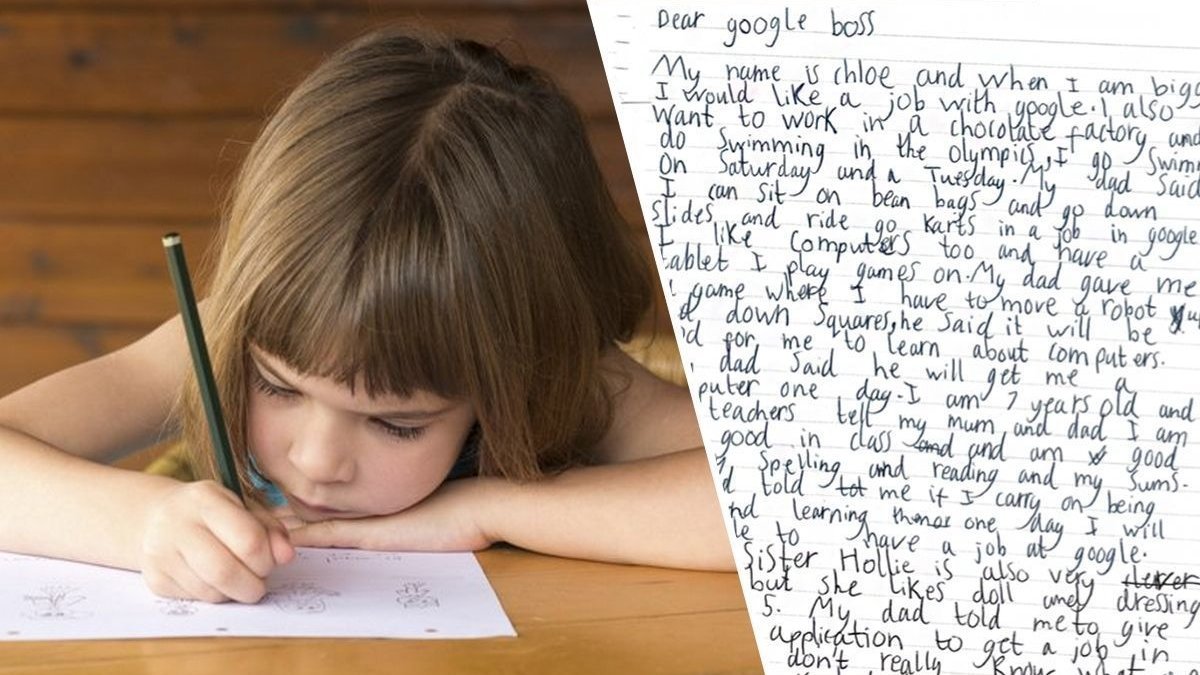 Dear google boss
My name is chloe and when I am bigg
I would like a job with google. I also
want to work in a chocolate factory and
do swimming in the olympics, I go Swimm
on Saturday and a Tuesday. My dad said
I can sit on bean bags and go down
slides and ride go karts in a job in google
I like computers too and have a
tablet I play games on. My dad gave me
game where I have to move a robot
down squares, he said it will be
for me to learn about computers.
dad said he will get me a
puter one day. I am 7 years old and
teachers tell my mum and dad I am
good in class and and am good
spelling and reading and my sums.
told me if I carry on being
nd learning one day I will
le to have a job at google.
Sister Hollie is also very clever
but she likes doll and dressing
5. My dad told me to give
application to get a job in
don't really know what